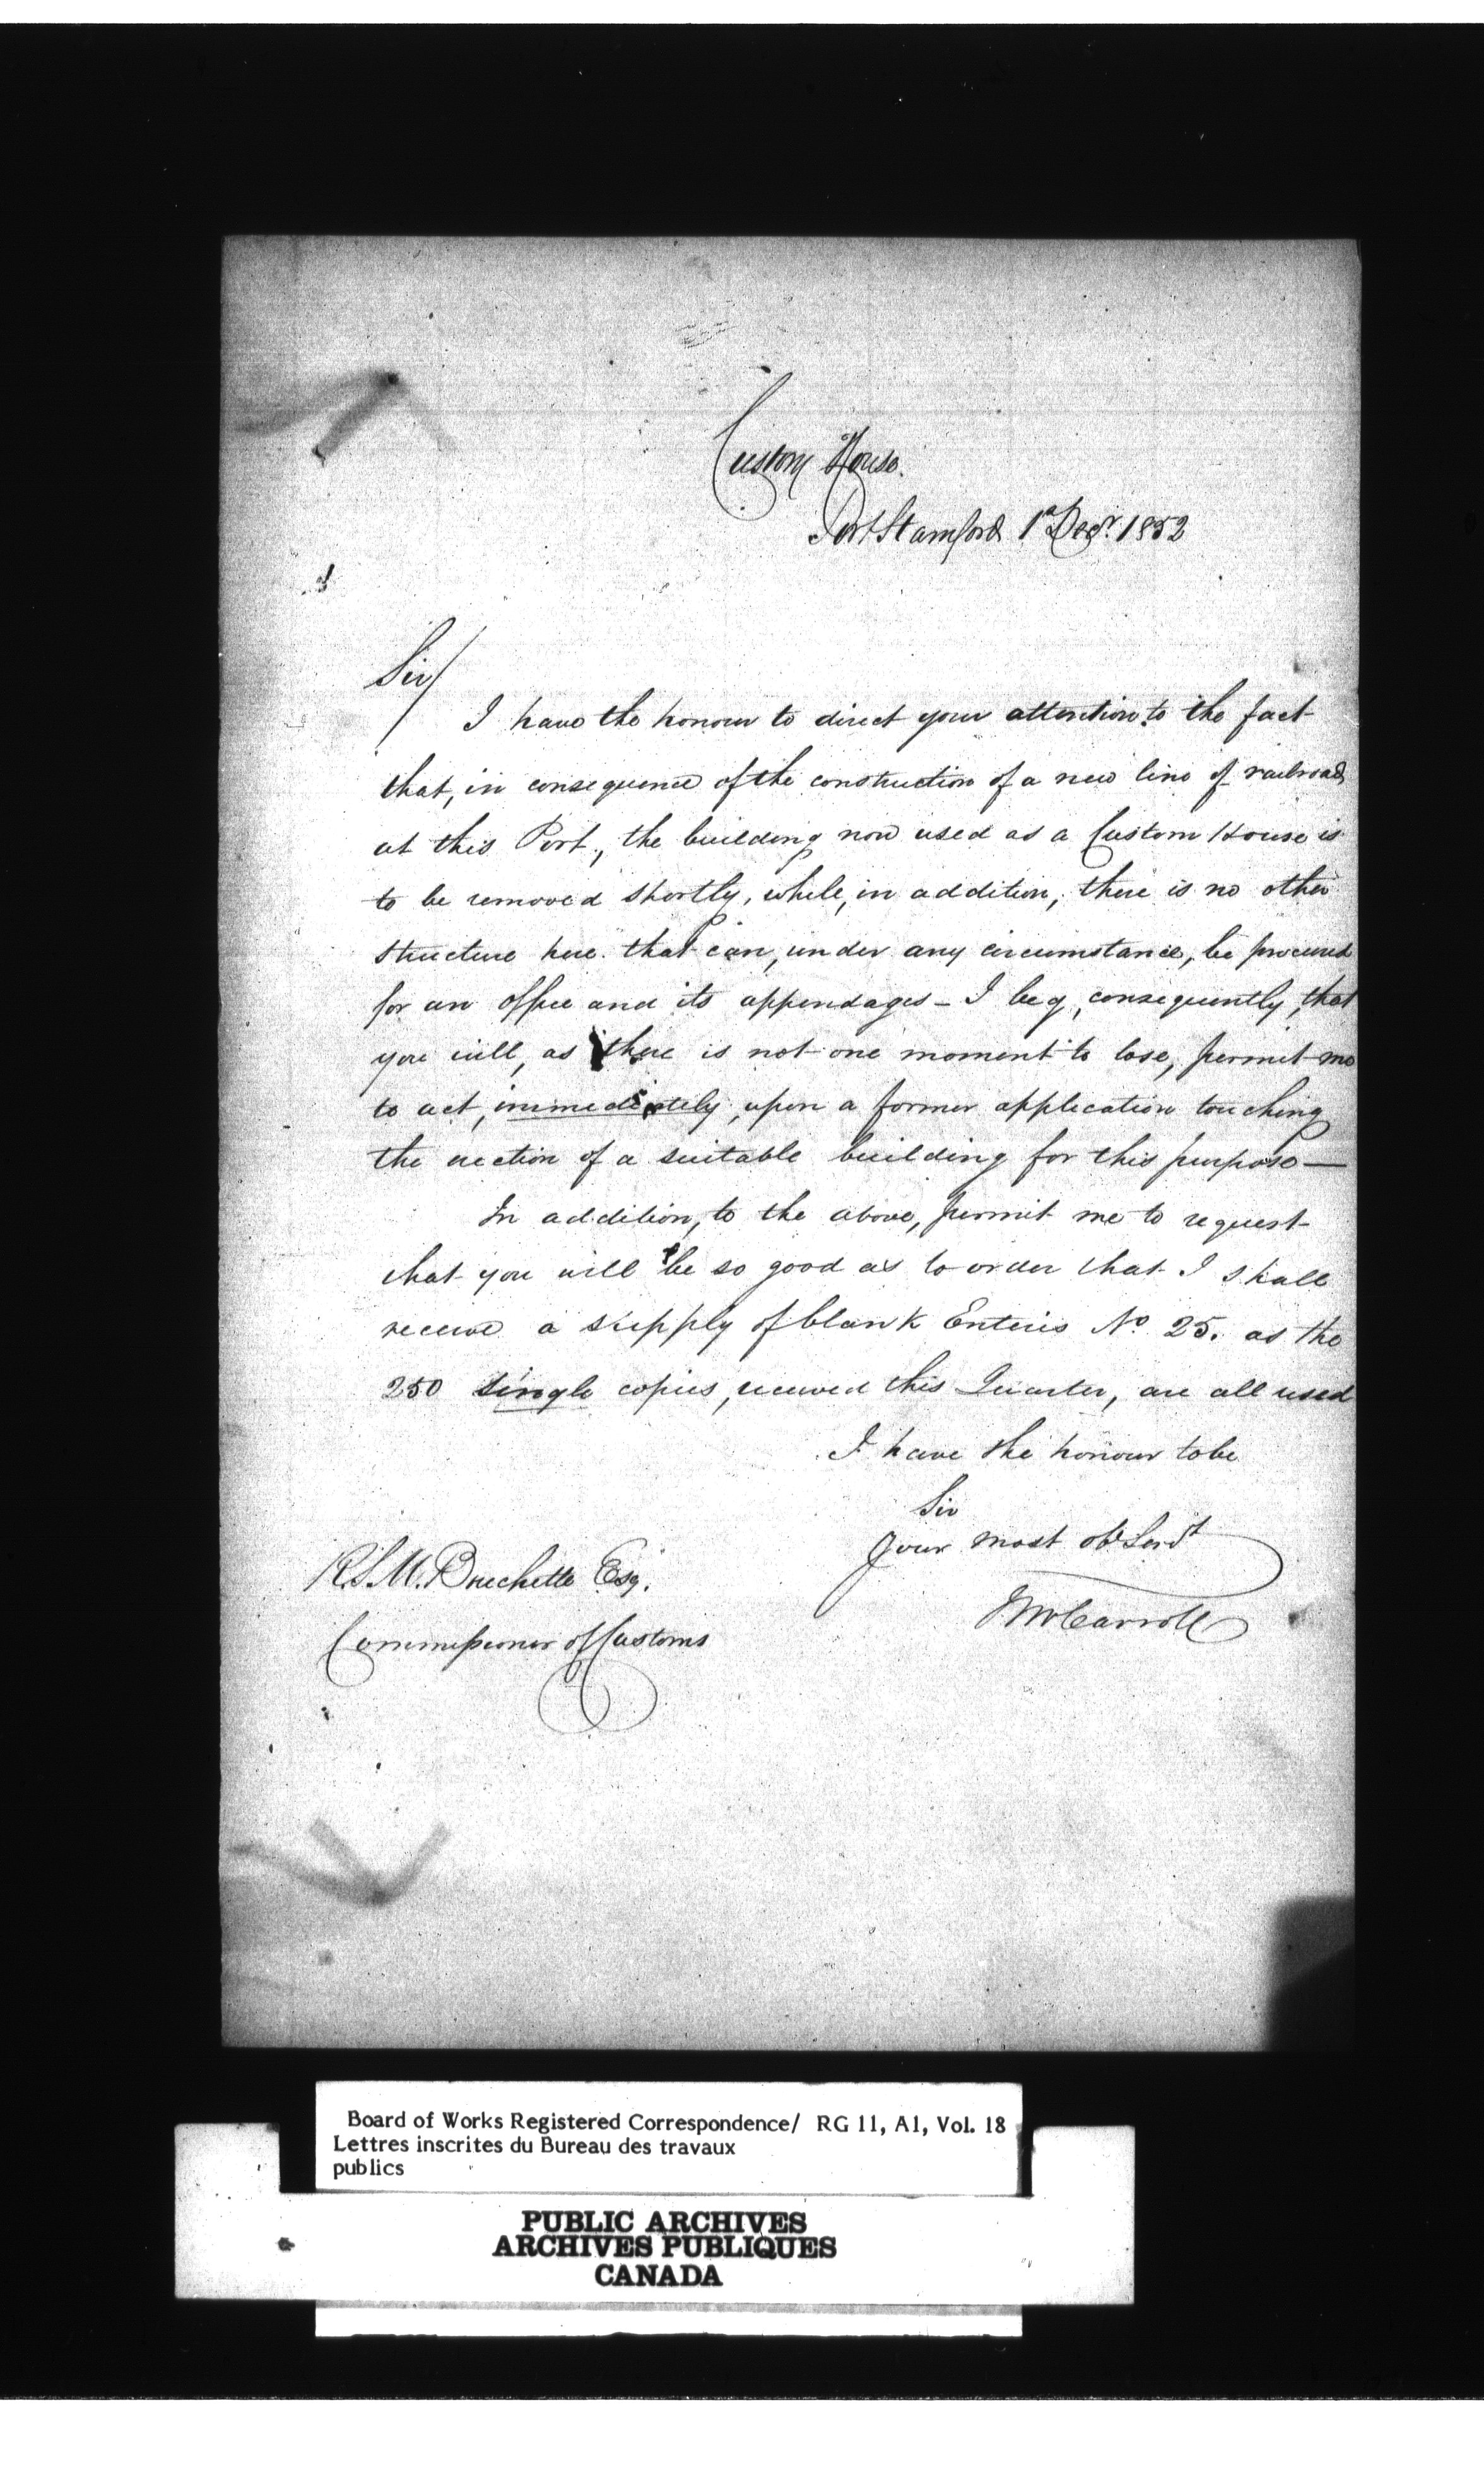 Custom House.
Port Stamford 1st Decr. 1852
Sir/
I have the honour to direct your attention to the fact
that, in consequence of the construction of a new line of railroad,
at this Port, the building now used as a Custom House is
to be removed shortly, while, in addition, there is no other
structure here that can, under any circumstance, be procured
for an office and its appendages - I beg, consequently, that
you will, as there is not one moment to lose, permit me
to act, immediately, upon a former application touching
the erection of a suitable building for this purpose—
In addition, to the above, permit me to request
that you will be so good as to order that I shall
receive a supply of blank Enteries No 25. as the
250 single copies, received this Quarter, are all used
I have the honour to be
Sir
Your most obt Servt
R.S.M. Bouchette Esq.
McCarroll
Commissioner of Customs
Board of Works Registered Correspondence/ RG 11, A1, Vol. 18
Lettres inscrites du Bureau des travaux
publics
PUBLIC ARCHIVES
ARCHIVES PUBLIQUES
CANADA